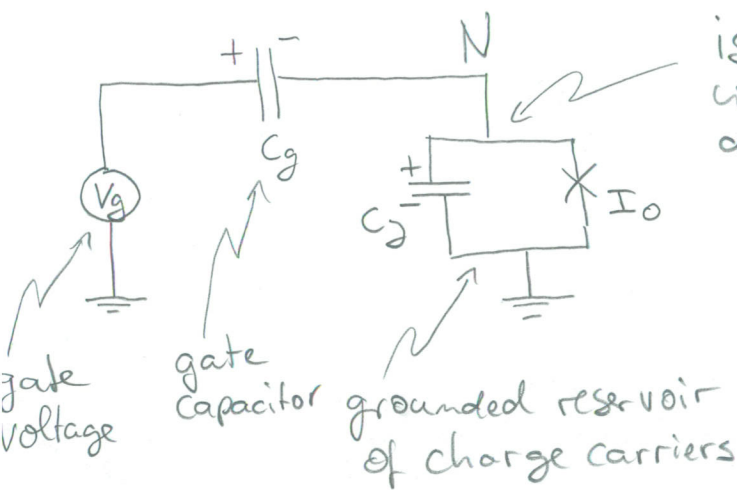 + -
N
Cg
Vg
+
-
CJ
I0
gate
voltage
gate
capacitor
grounded reservoir
of charge carriers